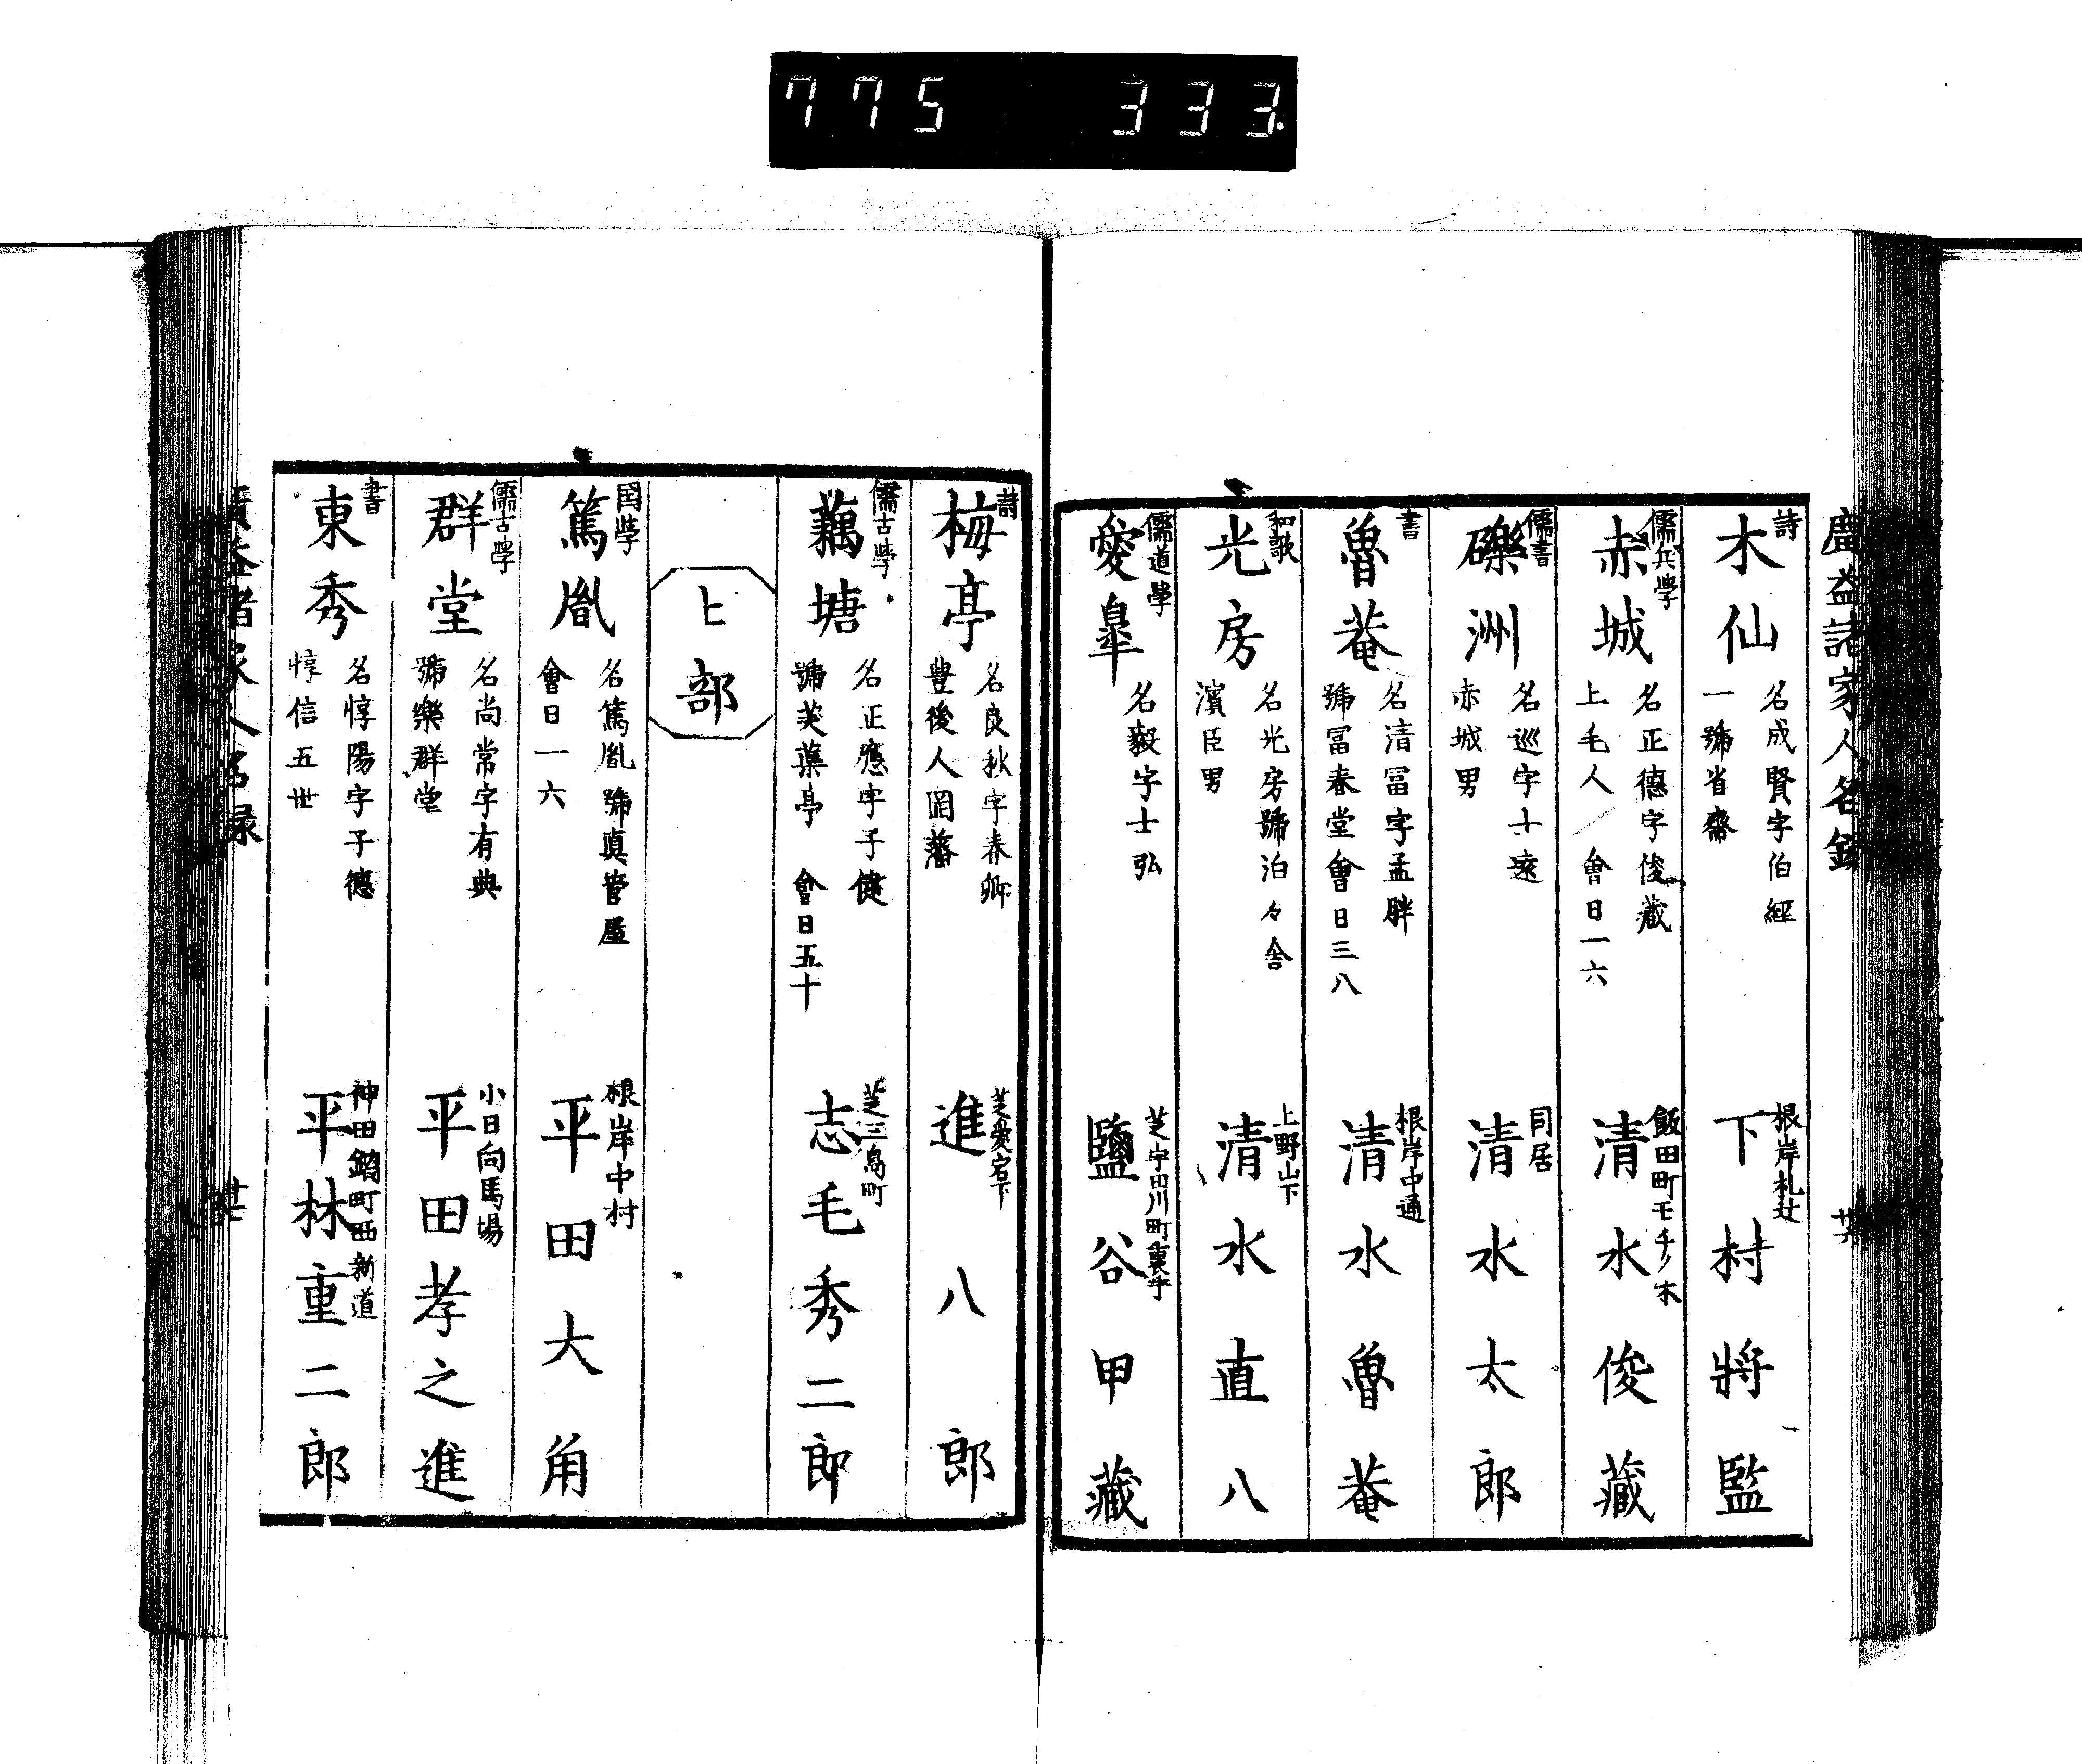 775 333.
廣益諸家人名録
詩
木仙
名成賢字伯經
一號省齋
根岸札辻
下村將監
儒兵學
赤城
名正德字俊藏
上毛人 會日一六
飯田町モチノ木
清水俊藏
儒書
礫洲
名巡字士遠
赤城男
同居
清水太郎
書
魯菴
名清冨字孟胖
號冨春堂會日三八
根岸中通
清水魯菴
和歌
光房
名光房號泊々舎
濱臣男
上野山下
清水直八
儒道學
愛皐
名毅字士弘
芝宇田川町裏手
鹽谷甲藏
廿六
詩
梅亭
名良秋字春卿
豊後人岡藩
芝愛宕下
進八郎
儒古學
藕塘
名正應字子健
號芙蕖亭 會日五十
芝三島町
志毛秀二郎
ヒ部
国學
篤胤
名篤胤號真菅屋
會日一六
根岸中村
平田大角
儒古學
群堂
名尚常字有典
號樂群堂
小日向馬場
平田孝之進
書
東秀
名惇陽字子德
惇信五世
神田鍋町西新道
平林重二郎
廣益諸家人名録
廿七